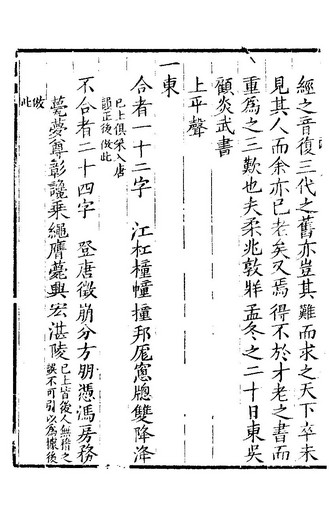 經之音復三代之舊亦豈其難而求之天下卒未
見其人而余亦已老矣又焉得不於才老之書而
重爲之三歎也夫柔兆敦牂孟冬之二十日東吳
顧炎武書
上平聲
一東
合者一十二字　江杠橦幢撞邦厖窻牕雙降洚
已上俱采入唐
韻正後倣此
不合者二十四字　登唐徵崩分方朋憑馮房務
甍夢尊彰讒乘繩膺薨興宏湛陵
已上皆後人無稽之
誤不可引以爲據後
倣此